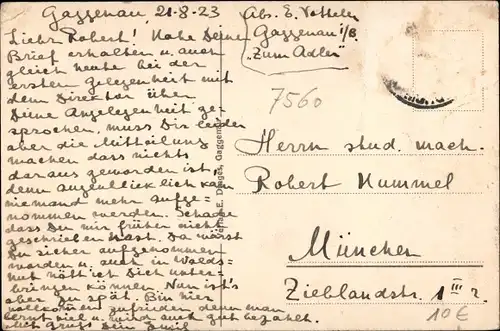 Gaggenau, 21.8.23
Lieber Robert! Habe Deinen
Brief erhalten u. auch
gleich heute bei der
ersten Gelegenheit mit
dem Direktor über
Deine Angelegenheit ge-
sprochen, muss Dir leider
aber die Mitteilung
machen dass nichts
daraus geworden ist,
denn augenblicklich kann
niemand mehr aufge-
nommen werden. Schade
dass Du mir früher nicht
geschrieben hast. Da wärst
Du sicher aufgenommen
worden u. auch in Walds-
hut hätt ich Dich unter-
bringen können. Nun ist's
aber zu spät. Bin hier
vollkommen zufrieden, denn man
lernt viel u. wird auch gut bezahlt.
Gruss Dein Emil
Abs. E. Vetteler
Gaggenau i/B.
"Zum Adler"
7560
Verlag E. Gaggenau
Herrn stud. mach.
Robert Hummel
München
Zieblandstr. 1 III r.
10€